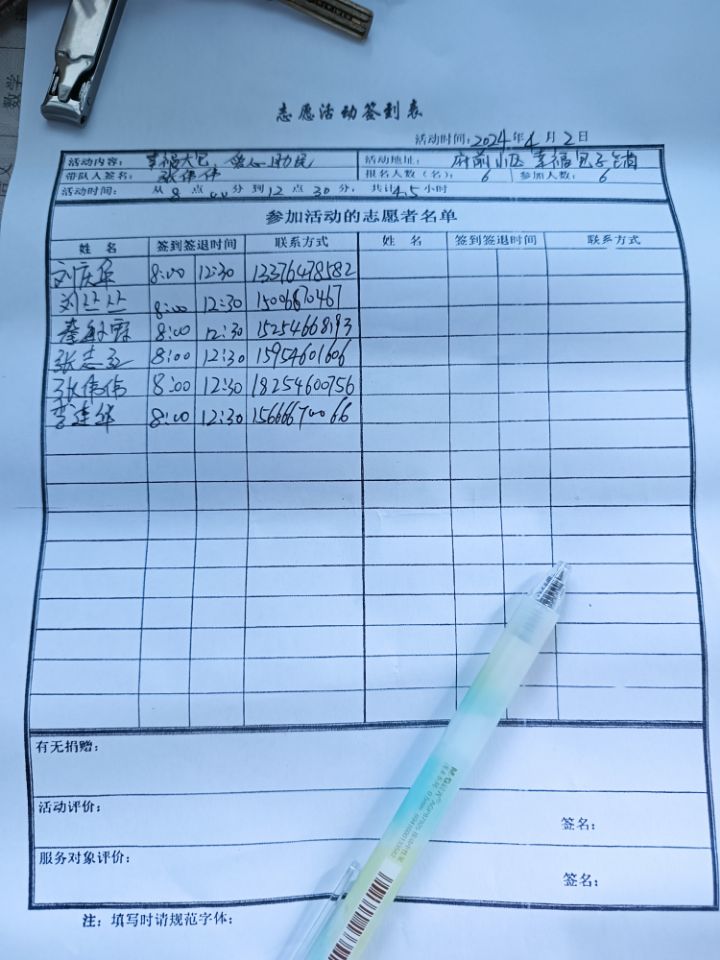 志愿活动签到表
活动时间：2024年4月2日
活动内容： 幸福大包，爱心助民 活动地址： 府前小区幸福包子
带队人签名： 张伟伟 报名人数（名）： 6 参加人数： 6
活动时间： 从 8 点 00 分 到 12 点 30 分， 共计4.5小时
参加活动的志愿者名单
姓 名 签到签退时间 联系方式 姓 名 签到签退时间 联系方式
刘庆华 8:00 12:30 13376478582
刘兰兰 8:00 12:30 1506670467
秦 8:00 12:30 15254668193
张志 8:00 12:30 15954601606
张伟伟 8:00 12:30 18254600756
李建华 8:00 12:30 15666670066
有无捐赠：
活动评价：
签名：
服务对象评价：
签名：
注：填写时请规范字体；
数学
M&G